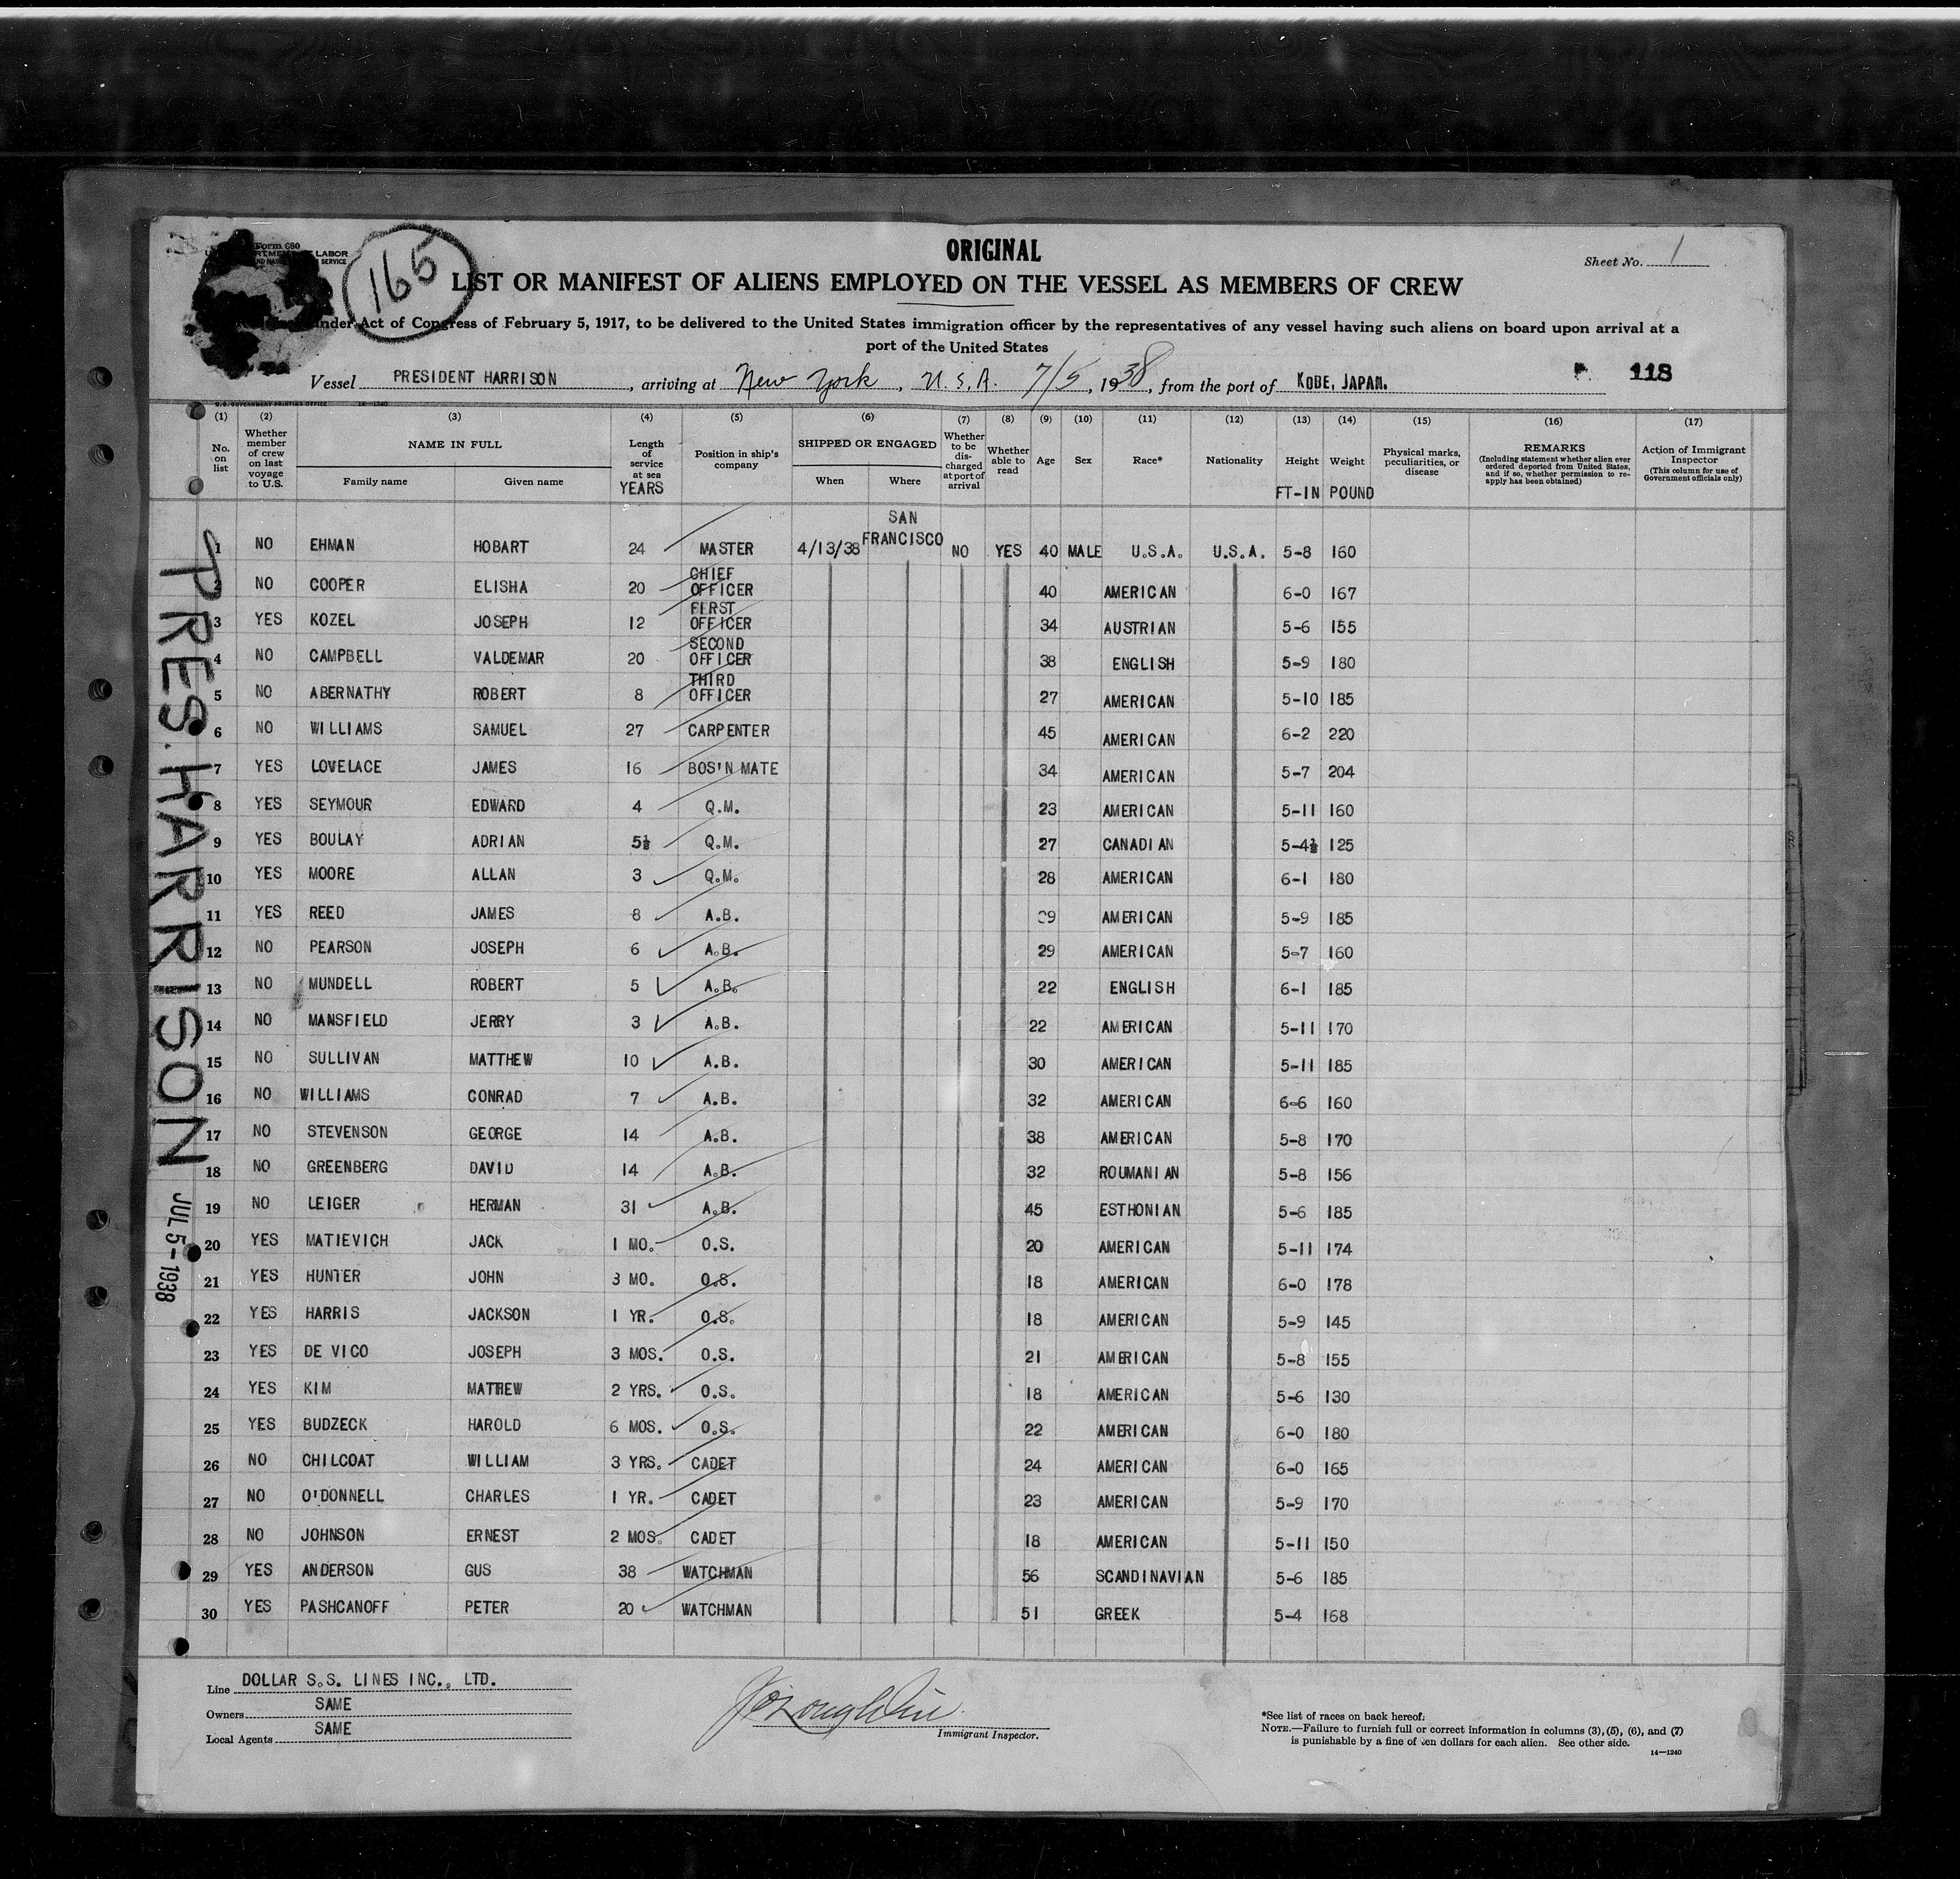 Form 680
LABOR
SERVICE
165
ORIGINAL
Sheet No. 1
LIST OR MANIFEST OF ALIENS EMPLOYED ON THE VESSEL AS MEMBERS OF CREW
under Act of Congress of February 5, 1917, to be delivered to the United States immigration officer by the representatives of any vessel having such aliens on board upon arrival at a
port of the United States
Vessel PRESIDENT HARRISON, arriving at New York, U.S.A. 7/5, 1938, from the port of KOBE, JAPAN.
118
U.S. GOVERNMENT PRINTING OFFICE 14—1240
(1) (2) (3) (4) (5) (6) (7) (8) (9) (10) (11) (12) (13) (14) (15) (16) (17)
No. on list
Whether member of crew on last voyage to U.S.
NAME IN FULL
Family name
Given name
Length of service at sea
YEARS
Position in ship's company
SHIPPED OR ENGAGED
When
Where
Whether to be discharged at port of arrival
Whether able to read
Age
Sex
Race*
Nationality
Height
FT-IN
Weight
POUND
Physical marks, peculiarities, or disease
REMARKS
(Including statement whether alien ever ordered deported from United States, and if so, whether permission to re-apply has been obtained)
Action of Immigrant Inspector
(This column for use of Government officials only)
1 NO EHMAN HOBART 24 MASTER 4/13/38 SAN FRANCISCO NO YES 40 MALE U.S.A. U.S.A. 5-8 160
2 NO COOPER ELISHA 20 CHIEF OFFICER 40 AMERICAN 6-0 167
3 YES KOZEL JOSEPH 12 FIRST OFFICER 34 AUSTRIAN 5-6 155
4 NO CAMPBELL VALDEMAR 20 SECOND OFFICER 38 ENGLISH 5-9 180
5 NO ABERNATHY ROBERT 8 THIRD OFFICER 27 AMERICAN 5-10 185
6 NO WILLIAMS SAMUEL 27 CARPENTER 45 AMERICAN 6-2 220
7 YES LOVELACE JAMES 16 BOS'N MATE 34 AMERICAN 5-7 204
8 YES SEYMOUR EDWARD 4 Q.M. 23 AMERICAN 5-11 160
9 YES BOULAY ADRIAN 5½ Q.M. 27 CANADIAN 5-4½ 125
10 YES MOORE ALLAN 3 Q.M. 28 AMERICAN 6-1 180
11 YES REED JAMES 8 A.B. AMERICAN 5-9 185
12 NO PEARSON JOSEPH 6 A.B. 29 AMERICAN 5-7 160
13 NO MUNDELL ROBERT 5 A.B. 22 ENGLISH 6-1 185
14 NO MANSFIELD JERRY 3 A.B. 22 AMERICAN 5-11 170
15 NO SULLIVAN MATTHEW 10 A.B. 30 AMERICAN 5-11 185
16 NO WILLIAMS CONRAD 7 A.B. 32 AMERICAN 6-6 160
17 NO STEVENSON GEORGE 14 A.B. 38 AMERICAN 5-8 170
18 NO GREENBERG DAVID 14 A.B. 32 ROUMANIAN 5-8 156
19 NO LEIGER HERMAN 31 A.B. 45 ESTHONIAN 5-6 185
20 YES MATIEVICH JACK 1 MO. O.S. 20 AMERICAN 5-11 174
21 YES HUNTER JOHN 3 MO. O.S. 18 AMERICAN 6-0 178
22 YES HARRIS JACKSON 1 YR. O.S. 18 AMERICAN 5-9 145
23 YES DE VICO JOSEPH 3 MOS. O.S. 21 AMERICAN 5-8 155
24 YES KIM MATHEW 2 YRS. O.S. 18 AMERICAN 5-6 130
25 YES BUDZECK HAROLD 6 MOS. O.S. 22 AMERICAN 6-0 180
26 NO CHILCOAT WILLIAM 3 YRS. CADET 24 AMERICAN 6-0 165
27 NO O'DONNELL CHARLES 1 YR. CADET 23 AMERICAN 5-9 170
28 NO JOHNSON ERNEST 2 MOS. CADET 18 AMERICAN 5-11 150
29 YES ANDERSON GUS 38 WATCHMAN 56 SCANDINAVIAN 5-6 185
30 YES PASHCANOFF PETER 20 WATCHMAN 51 GREEK 5-4 168
PRES. HARRISON
JUL 5-1938
Line DOLLAR S.S. LINES INC., LTD.
Owners SAME
Local Agents SAME
Immigrant Inspector.
*See list of races on back hereof.
NOTE.—Failure to furnish full or correct information in columns (3), (5), (6), and (7)
is punishable by a fine of ten dollars for each alien. See other side.
14—1240